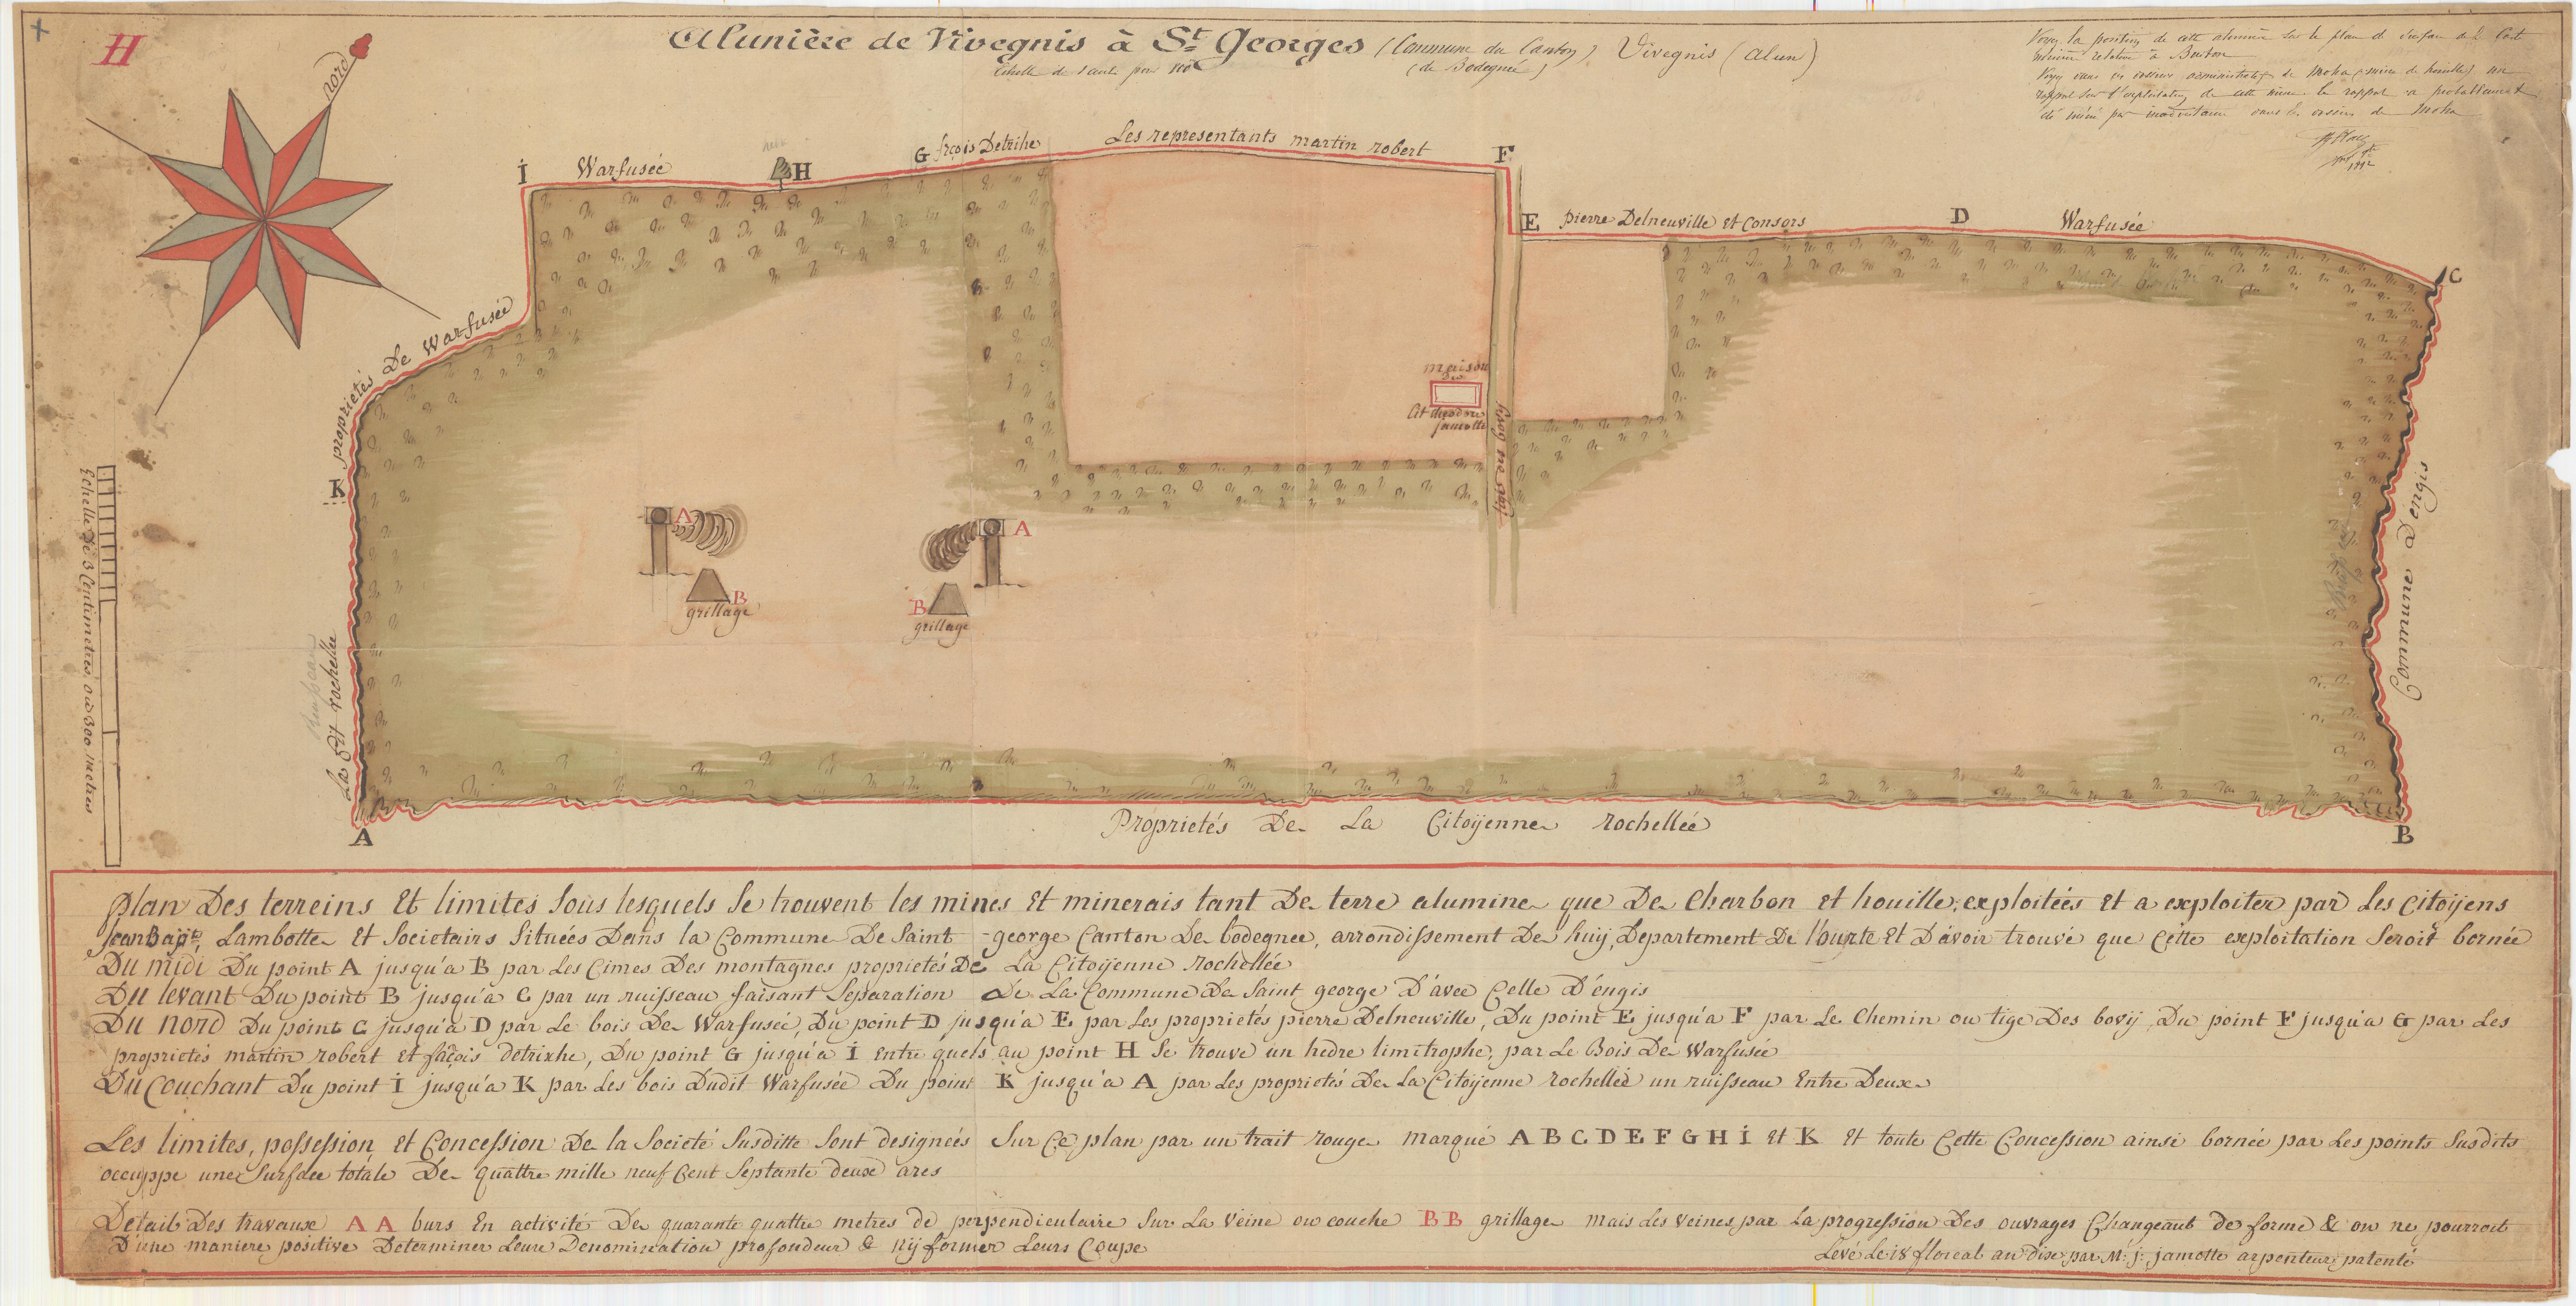 H
nord
Alunière de Vivegnis à St Georges (Commune du Canton de Bodegnée) Vivegnis (alun)
Voyez la position de cette alunière sur le plan de surface
İ
Warfusée
H
G
frçois Detrihe
Les representants martin robert
F
E
pierre Delneuville et Consors
D
Warfusée
C
proprietés De Warfusée
K
maison
Du
Cit
jamotte
tige de bovij
A
A
B
grillage
B
grillage
Commune D'engis
Echelle De 3 Centimetres ou 300 metres
La Cit rochelle
A
Proprietés De La Citoÿenne rochellée
B
plan Des terreins Et limites sous lesquels se trouvent les mines Et minerais tant De terre alumine que De Charbon et houille, exploitées Et a exploiter par Les Citoÿens
Jean Bapte Lambotte Et Societairs Situées Dans la Commune De Saint-george Canton De bodegnee, arrondissement De huij, Departement De l'ourte Et D'avoir trouvé que Cette exploitation Seroit bornée
Du midi Du point A jusqu'a B par Les Cimes Des montagnes proprietés De La Citoÿenne Rochellée
Du levant Du point B jusqu'a C par un ruisseau faisant Separation De La Commune De Saint george D'avec Celle D'engis
Du nord Du point C jusqu'a D par Le bois De Warfusée, Du point D jusqu'a E par Les proprietés pierre Delneuville, Du point E jusqu'a F par Le Chemin ou tige Des bovij, Du point F jusqu'a G par Les
proprietés martin robert et façois detrixhe, Du point G jusqu'a İ Entre quels au point H Se trouve un hedre limitrophe, par Le Bois De Warfusée
Du Couchant Du point İ jusqu'a K par Les bois Dudit Warfusée Du point K jusqu'a A par Les proprietés De La Citoÿenne rochellée un ruisseau Entre Deux
Les limites, possession Et Concession De la Societé Susditte Sont designées Sur Ce plan par un trait rouge marqué A B C D E F G H İ et K Et toute Cette Concession ainsi bornée par Les points Susdits
occuppe une Surface totale De quattre mille neuf Cent Septante deux ares
Detail Des travaux A A burs En activité De quarante quattre metres de perpendiculaire Sur La Veine ou couche B B grillage mais Les veines par La progression Des ouvrages Changeant de forme & on ne pourroit
D'une maniere positive Determiner Leurs Denomination profondeur & nÿ former Leurs Coupe
Levé Le 18 floreal an dix par M: j: jamotte arpenteur patenté